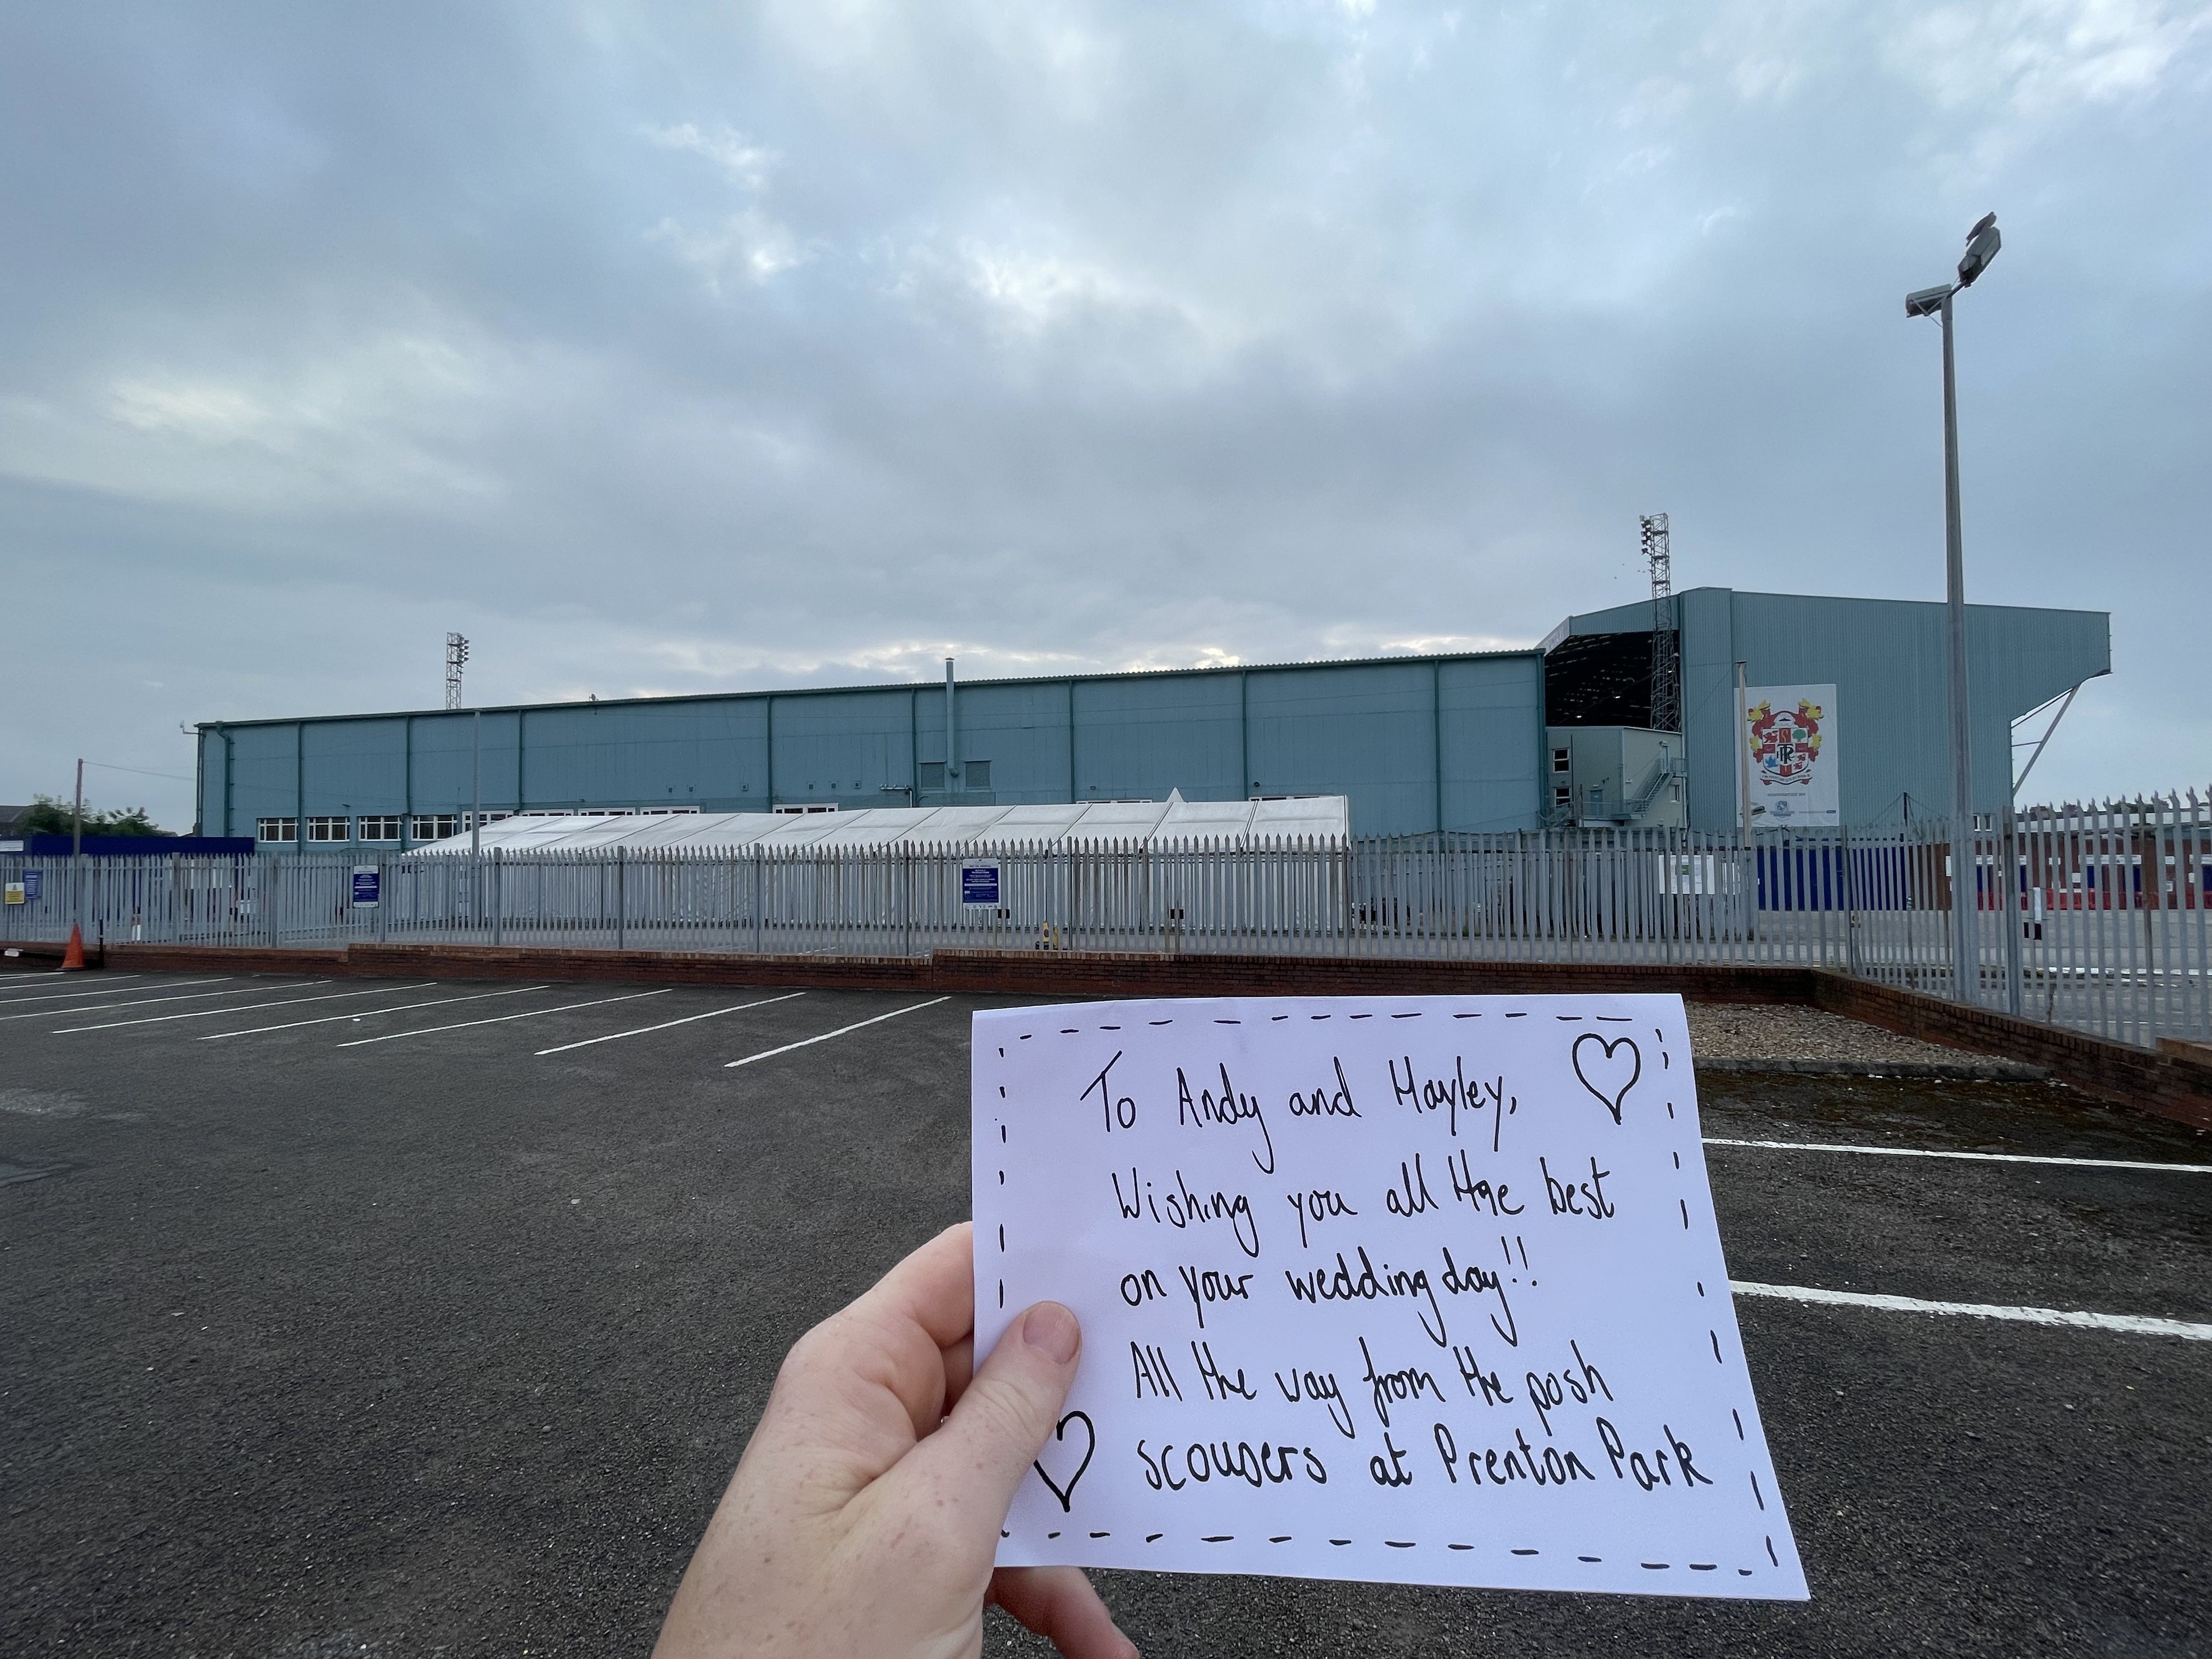 To Andy and Hayley,
Wishing you all the best
on your wedding day!!
All the way from the posh
scousers at Prenton Park